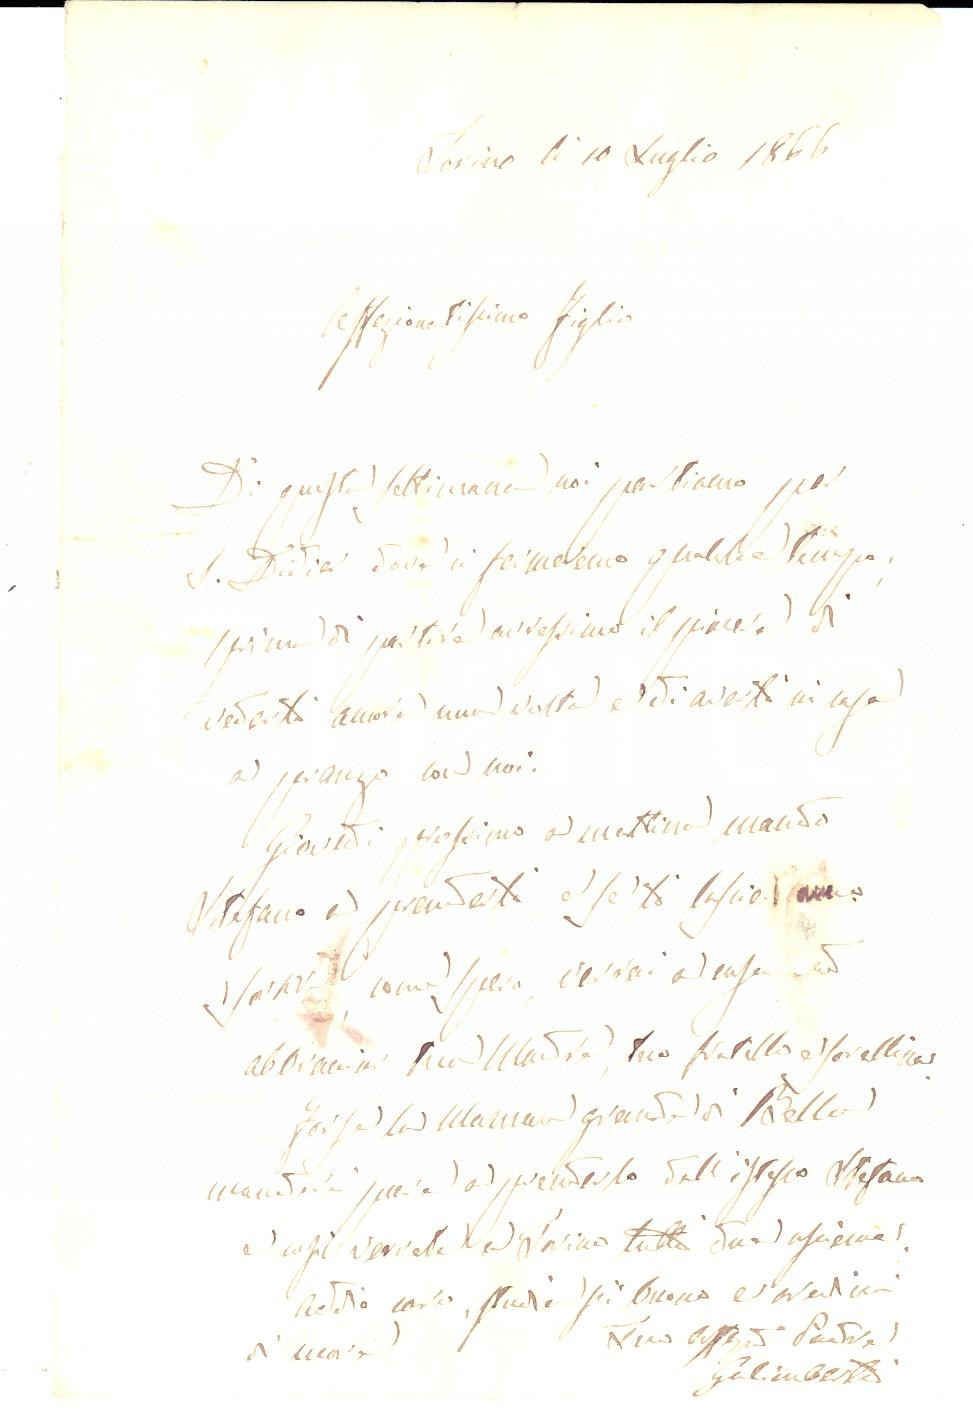 Torino li 10 Luglio 1866
Affezionatissimo Figlio
Di questa settimana noi partiamo per
S. Didier dove ci fermeremo qualche tempo,
prima di partire avressimo il piacere di
vederti ancora una volta e di averti in casa
a pranzo con noi.
Giovedi prossimo a mattina mando
Stefano a prenderti, e se ti lascieranno
sortire, come spero, verrai a casa ad
abbracciar tua Madre, tuo fratello e sorellina.
Forse la Maman grande di
manderà pure a prenderlo dall'istesso Stefano
e così verrete a Torino tutti due assieme.
addio caro, studia sii buono e credimi
di cuore
Tuo affez Padre
Galimberti